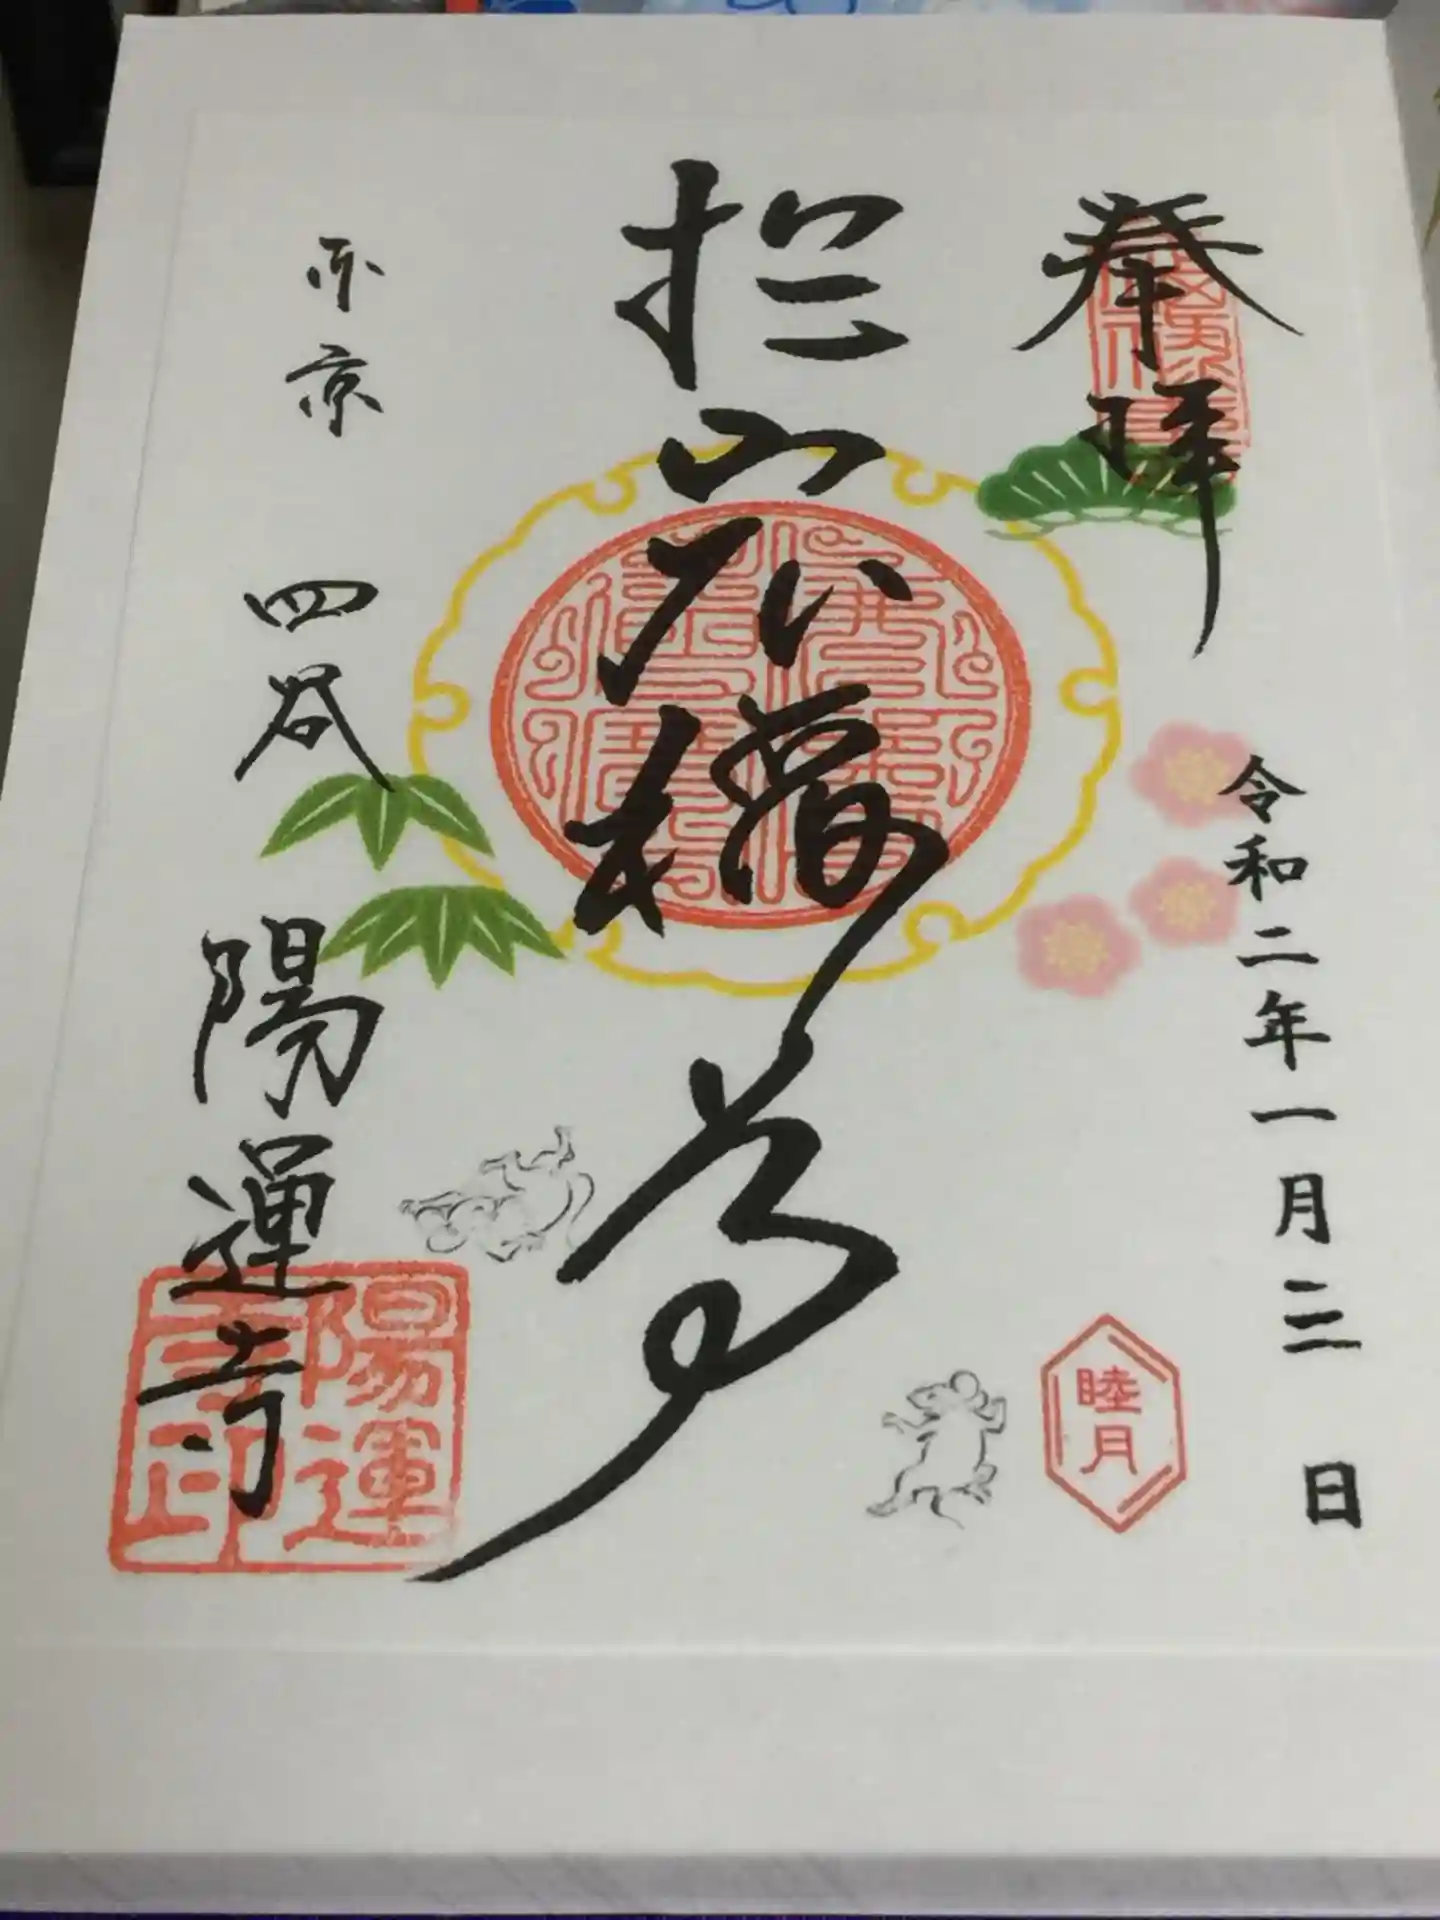 奉拝
令和二年一月三日
於岩 尊
東京 四谷 陽運寺
陽運寺印
睦月